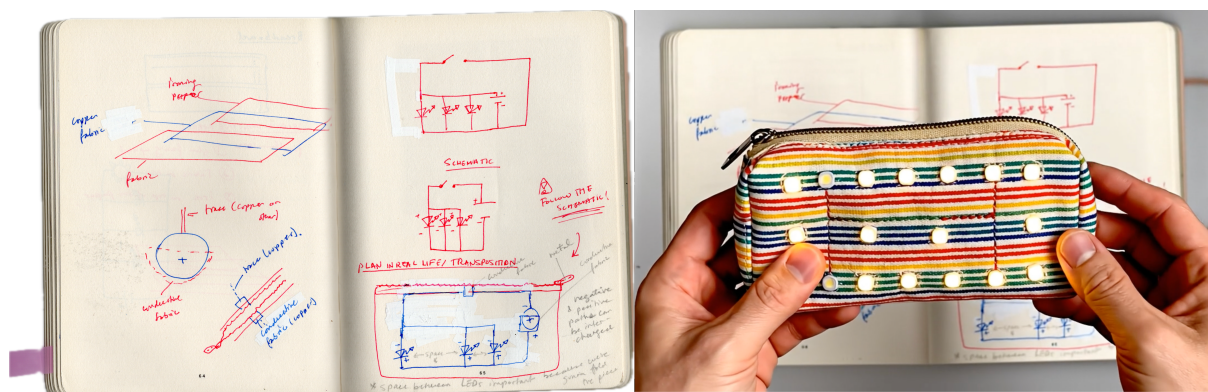 Ironing
paper
copper
fabric
fabric
trace (copper on
conductive
fabric
trace (copper).
conductive
fabric (copper)
64
SCHEMATIC
FOLLOW THE
SCHEMATIC!
PLAN IN REAL LIFE/TRANSPOSITION
metal
conductive
fabric
conductive
fabric
* negative
& positive
paths can
be inter-
changed
space
* space between LEDs important because we're
gonna fold
the piece
65
copper
fabric
fabric
* space between LEDs important